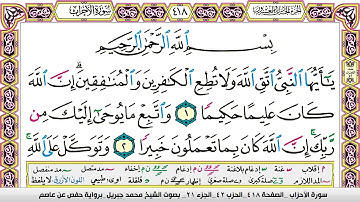 سورة الأحزاب
٤١٨
بِسْمِ ٱللَّهِ ٱلرَّحْمَٰنِ ٱلرَّحِيمِ
يَٰٓأَيُّهَا ٱلنَّبِىُّ ٱتَّقِ ٱللَّهَ وَلَا تُطِعِ ٱلْكَٰفِرِينَ وَٱلْمُنَٰفِقِينَ ۗ إِنَّ ٱللَّهَ
كَانَ عَلِيمًا حَكِيمًا ١ وَٱتَّبِعْ مَا يُوحَىٰٓ إِلَيْكَ مِن
رَّبِّكَ ۚ إِنَّ ٱللَّهَ كَانَ بِمَا تَعْمَلُونَ خَبِيرًا ٢ وَتَوَكَّلْ عَلَى ٱللَّهِ ۚ
سورة الأحزاب - الصفحة ٤١٨ - الحزب ٤٢ - الجزء ٢١ - بصوت الشيخ محمد جبريل - برواية حفص عن عاصم